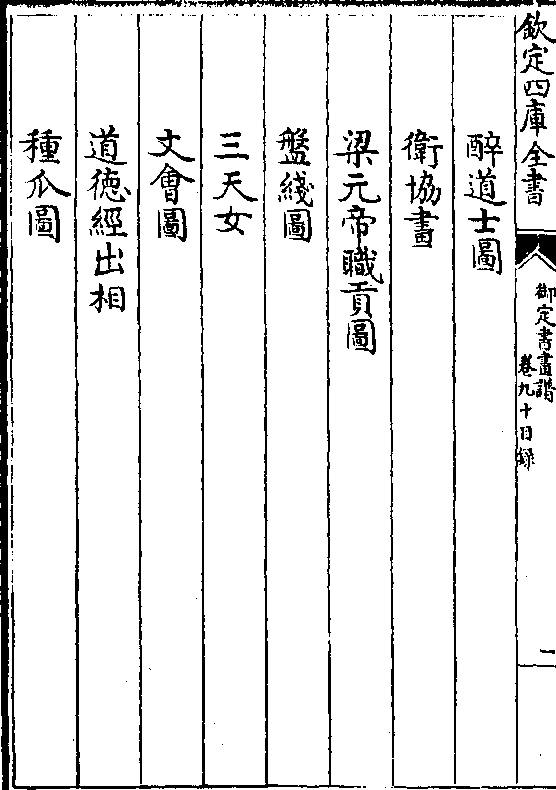 欽定四庫全書
御定書畫譜
卷九十目録
一
醉道士圖
衛協畫
梁元帝職貢圖
盤綫圖
三天女
文會圖
道徳經出相
種瓜圖